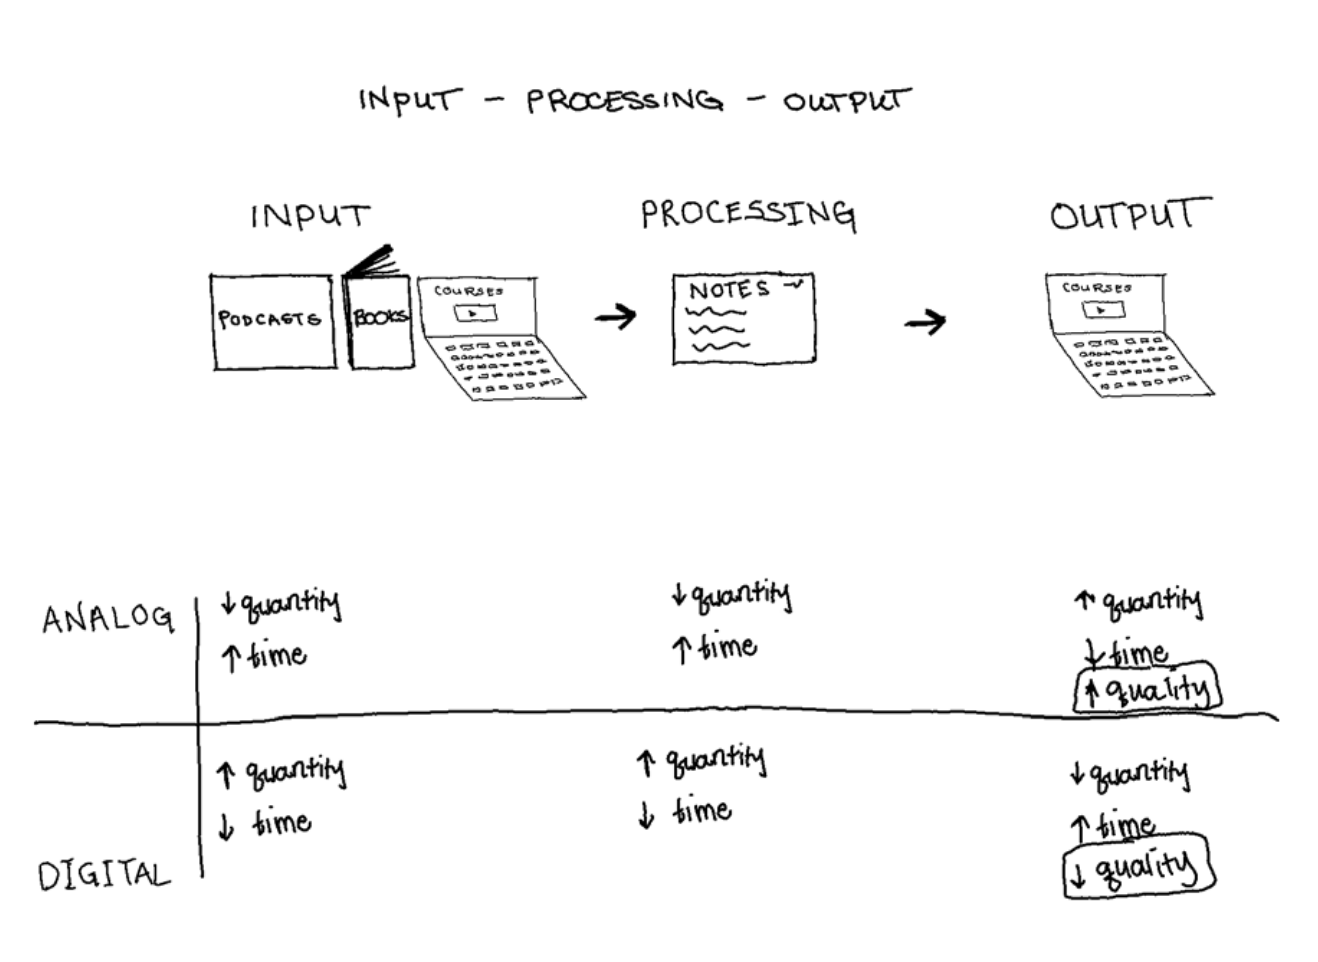 INPUT - PROCESSING - OUTPUT
INPUT
PROCESSING
OUTPUT
PODCASTS
BOOKS
COURSES
NOTES
COURSES
ANALOG
↓ quantity
↑ time
↓ quantity
↑ time
↑ quantity
↓ time
↑ quality
DIGITAL
↑ quantity
↓ time
↑ quantity
↓ time
↓ quantity
↑ time
↓ quality